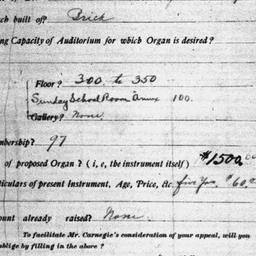 ch built of? Brick
ng Capacity of Auditorium for which Organ is desired?
Floor? 300 to 350
Sunday School Room Annex 100.
Gallery? None.
bership? 97
of proposed Organ? (i, e, the instrument itself) $1500.00
ticulars of present Instrument, Age, Price, &c. five yrs, $60.
ount already raised? None.
To facilitate Mr. Carnegie's consideration of your appeal, will you
oblige by filling in the above?